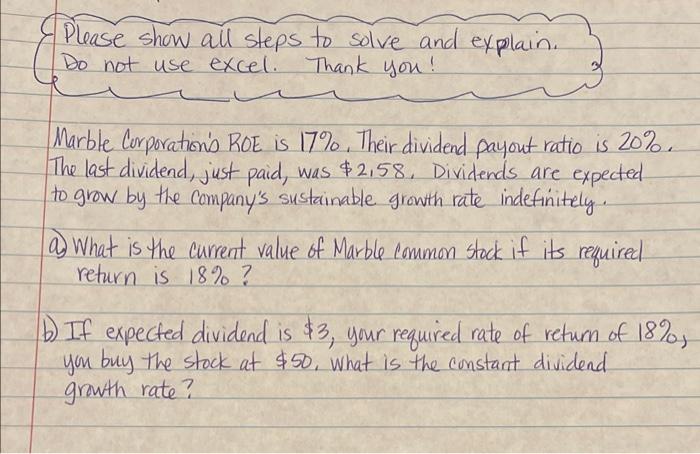 Please show all steps to solve and explain.
Do not use excel. Thank you!
Marble Corporation's ROE is 17%. Their dividend payout ratio is 20%.
The last dividend, just paid, was $2.58. Dividends are expected
to grow by the company's sustainable growth rate indefinitely.
a) What is the current value of Marble common stock if its required
return is 18%?
b) If expected dividend is $3, your required rate of return of 18%,
you buy the stock at $50. What is the constant dividend
growth rate?